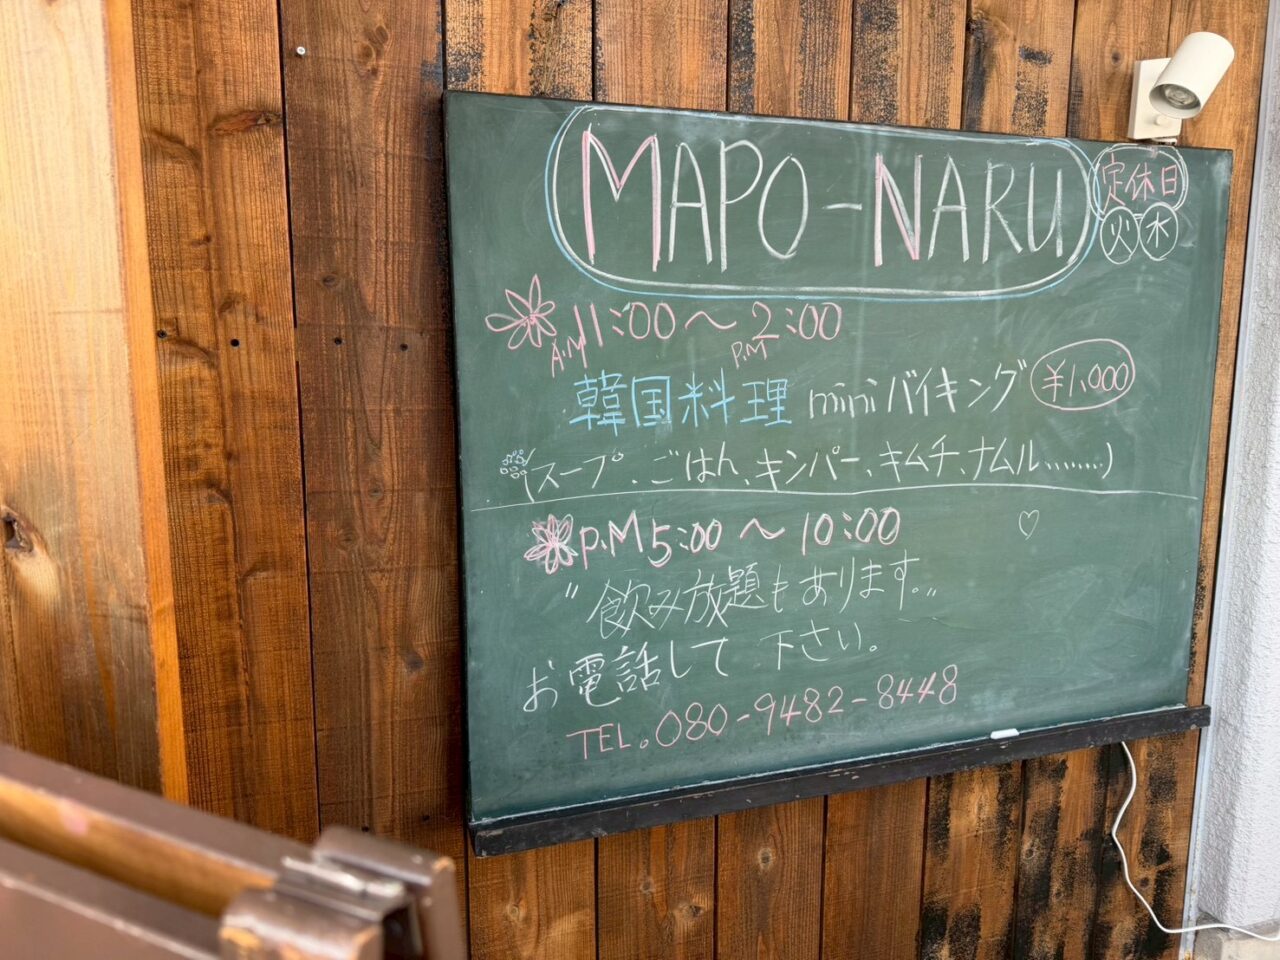 MAPO-NARU
定休日
火 水
A.M 11:00〜P.M 2:00
韓国料理 miniバイキング ¥1,000
(スープ、ごはん、キンパー、キムチ、ナムル........)
P.M 5:00 〜 10:00 ♡
"飲み放題もあります。"
お電話して下さい。
TEL. 080-9482-8448